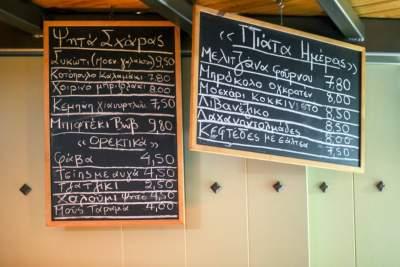 Ψητά Σχάρας
Συκώτι (Μοσχ. γάλακτος) 9,50
Κοτόπουλο καλαμάκι 7.80
Χοιρινό μπριζολάκι 8.00
Κεμπάπ γιαουρτλού 7,50
Μπιφτέκι 9,80
« Ορεκτικά »
Φάβα 4,50
Τσίπς με αυχά 4,50
Τζατζίκι 2,50
Χαλούμι ψητό 4,50
Μους Ταραμά 4,00
« Πιάτα Ημέρας »
Μελιτζάνα φούρνου 7.80
Μπρόκολο ογκρατέν 8,00
Μοσχάρι κοκκινιστό 8,50
Λιβανέζικο 8,50
Λαχανοντολμάδες 8,50
Κεφτέδες με σάλτσα 7,50